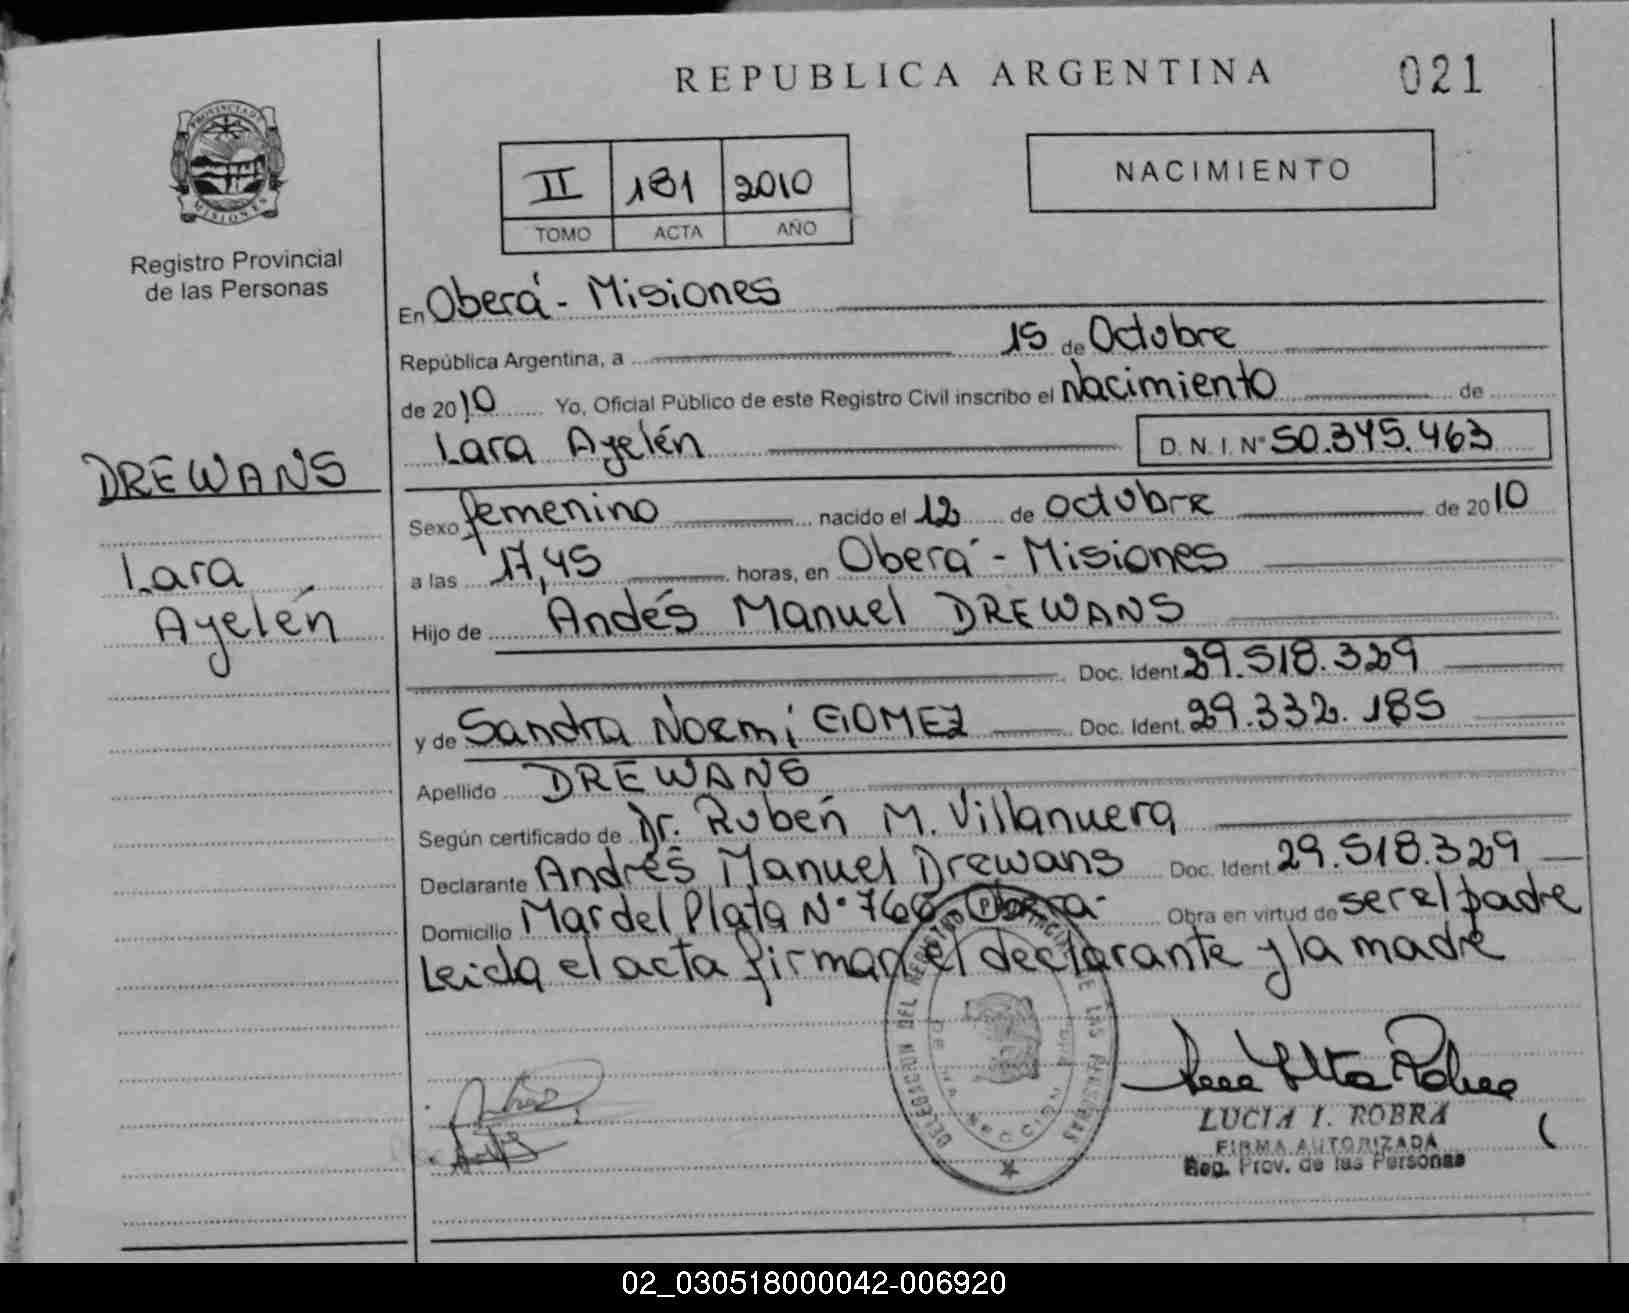 REPUBLICA ARGENTINA
021
PROVINCIA DE
MISIONES
Registro Provincial
de las Personas
II 181 2010
TOMO ACTA AÑO
NACIMIENTO
DREWANS
Lara
Ayelén
En Oberá - Misiones
República Argentina, a 15 de Octubre
de 2010 Yo, Oficial Público de este Registro Civil inscribo el Nacimiento de
Lara Ayelén D.N.I. Nº 50.345.463
Sexo femenino nacido el 12 de octubre de 2010
a las 17,45 horas, en Oberá - Misiones
Hijo de Andés Manuel DREWANS
Doc. Ident. 29.518.329
y de Sandra Noemí GOMEZ Doc. Ident. 29.332.185
Apellido DREWANS
Según certificado de Dr. Rubén M. Villanueva
Declarante Andrés Manuel Drewans Doc. Ident. 29.518.329
Domicilio Mar del Plata Nº 766 Oberá - Obra en virtud de ser el padre
Leida el acta firman el declarante y la madre
DELEGACION DEL REGISTRO PROVINCIAL DE LAS PERSONAS
LUCIA I. ROBRA
FIRMA AUTORIZADA
Reg. Prov. de las Personas
02_030518000042-006920